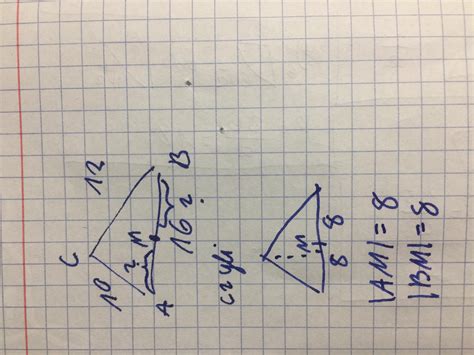 C
10
12
?
M
?
A
16
B
czyli
M
8 8
|AM| = 8
|BM| = 8